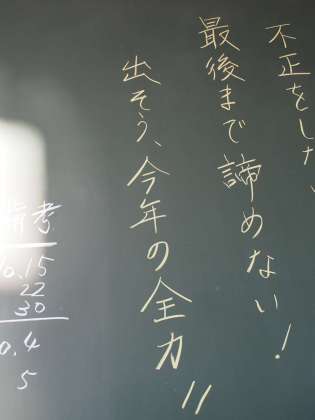 不正をした
最後まで諦めない!
出そう、今年の全力!!
考
0.15
22
30
0.4
5